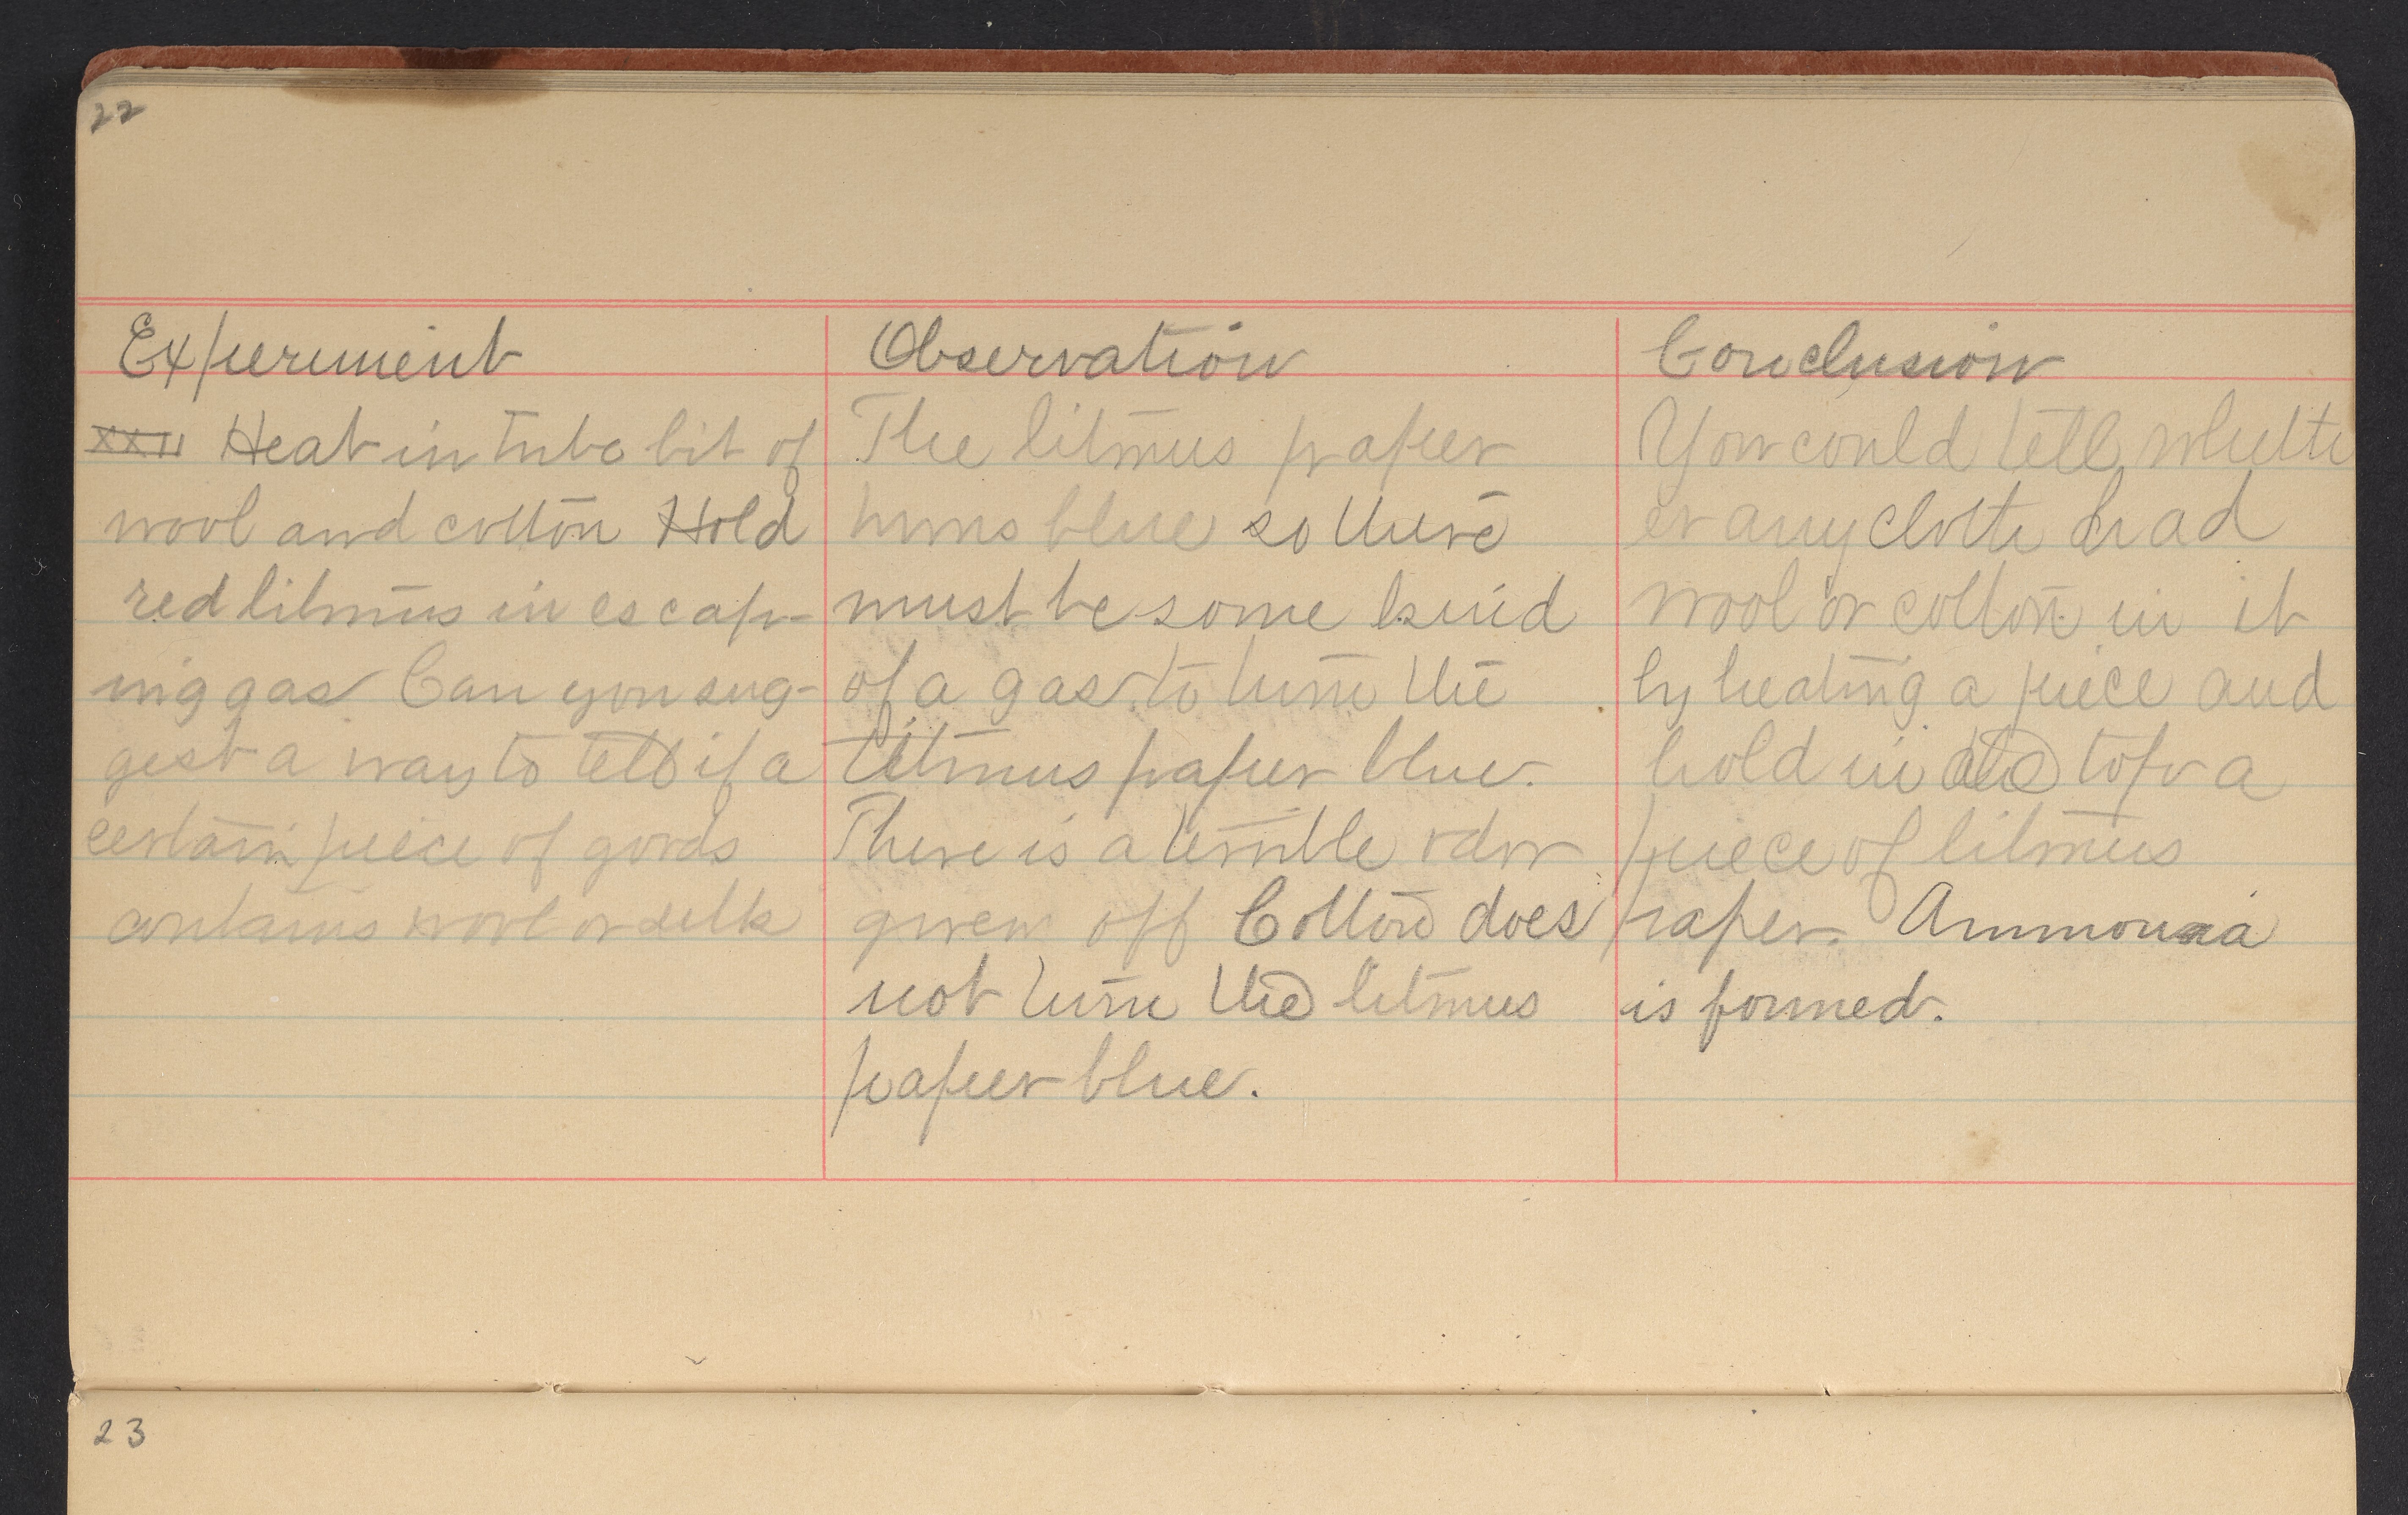 22
Experiment
XXII Heat in tube bit of
wool and cotton Hold
red litmus in escap-
ing gas Can you sug-
gest a way to tell if a
certain piece of goods
contains wool or silk
Observation
The litmus paper
turns blue so there
must be some kind
of a gas to turn the
litmus paper blue.
There is a terrible odor
given off Cotton does
not turn the litmus
paper blue.
Conclusion
You could tell wheth
er any cloth had
wool or cotton in it
by heating a piece and
hold in at top a
piece of litmus
paper. Ammonia
is formed.
23